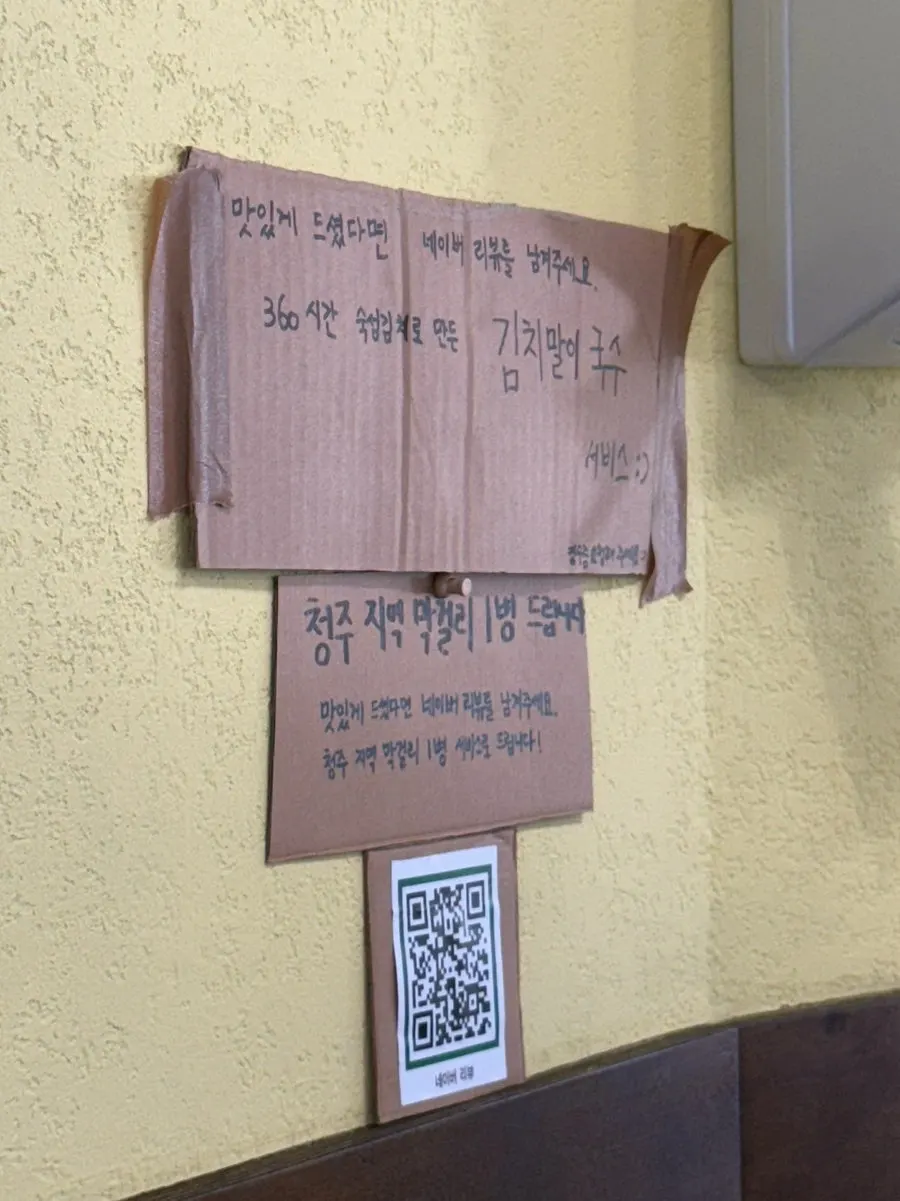 맛있게 드셨다면 네이버 리뷰를 남겨주세요.
360시간 숙성김치로 만든 김치말이 국수
서비스 :)
청주 지역 막걸리 1병 드립니다
맛있게 드셨다면 네이버 리뷰를 남겨주세요.
청주 지역 막걸리 1병 서비스로 드립니다!
네이버 리뷰